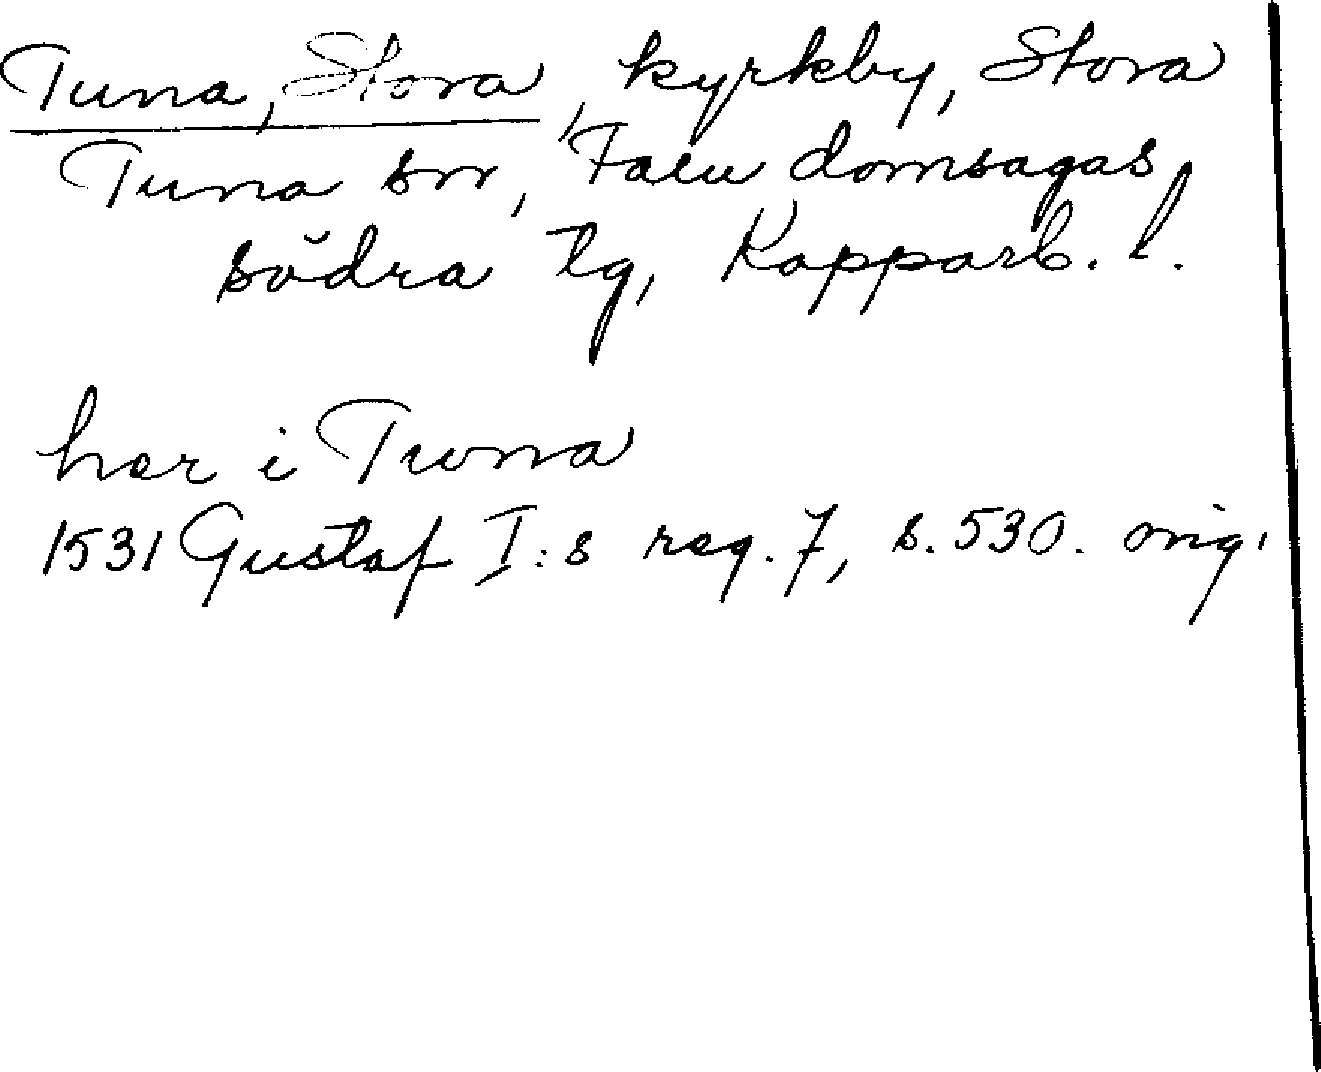 Tuna, Stora, kyrkby, Stora
Tuna sn, Falu domsagas
södra tg, Kopparb. l.
her i Twna
1531 Gustaf I:s reg. 7, s. 530. orig.